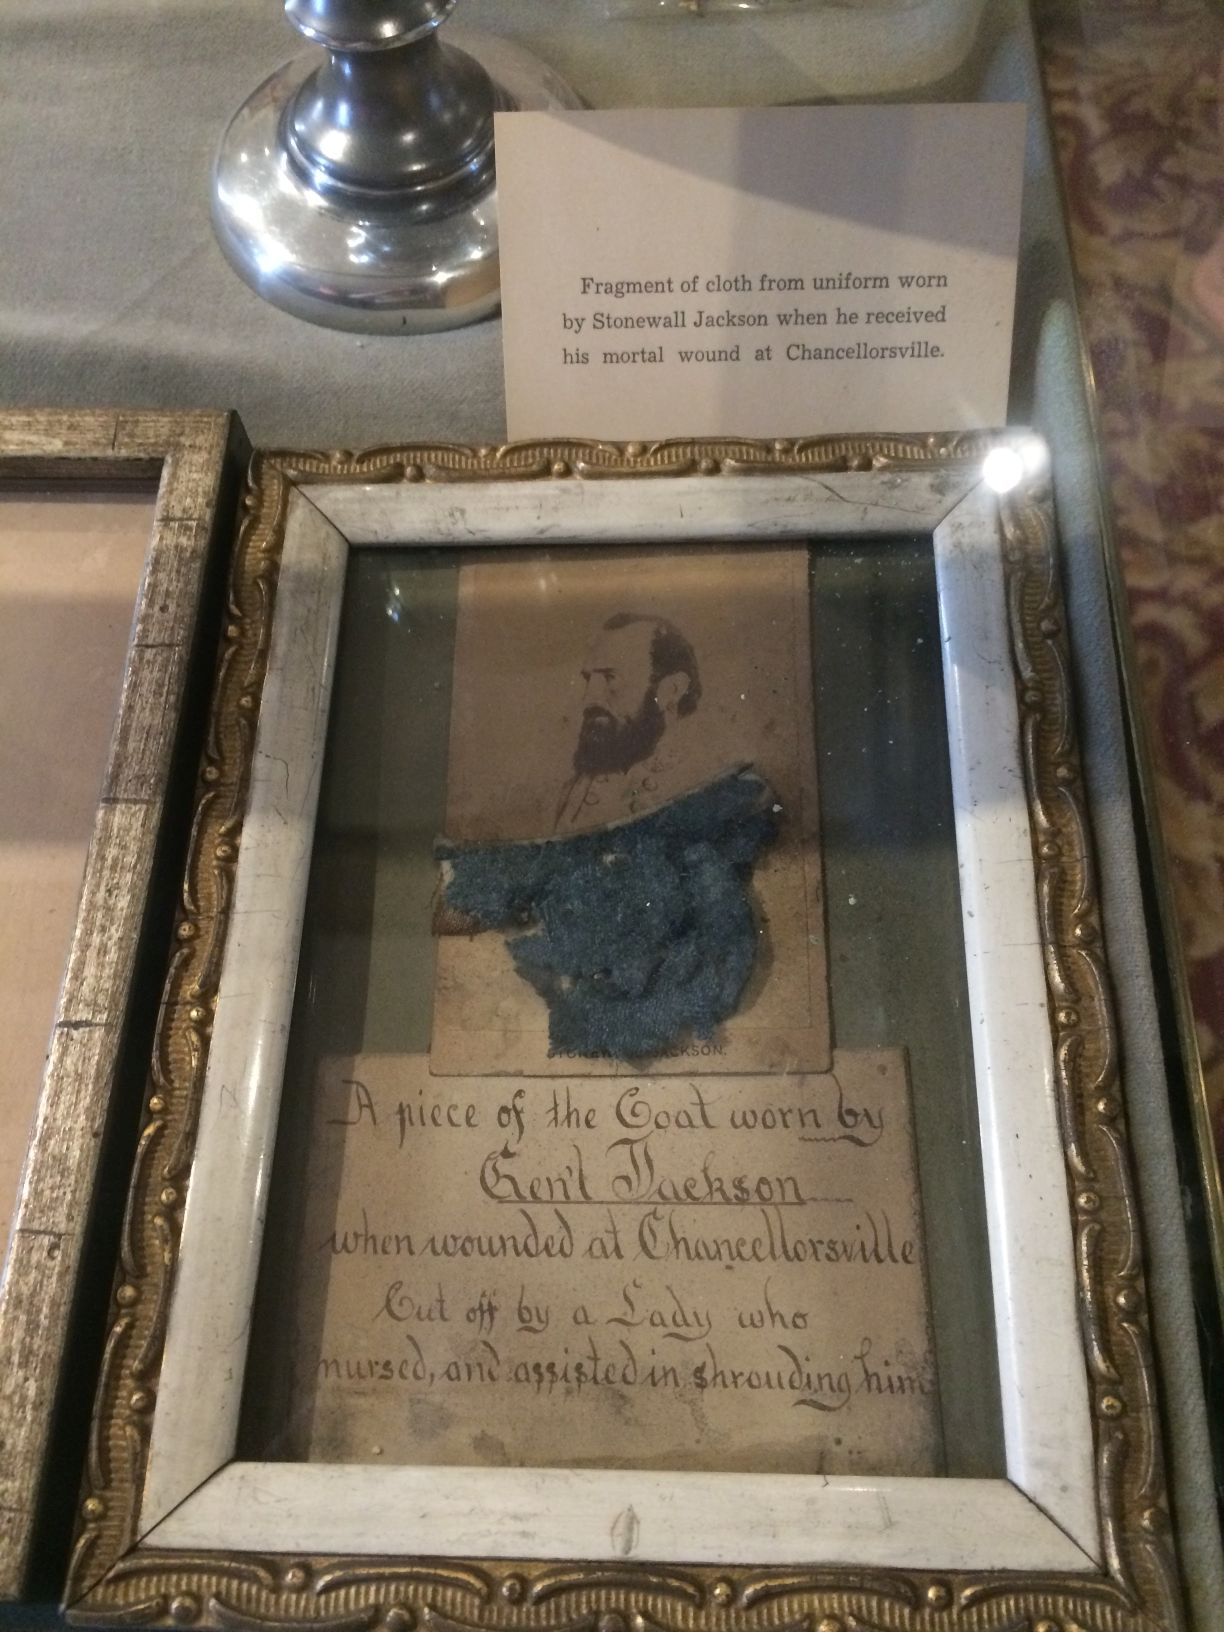 Fragment of cloth from uniform worn
by Stonewall Jackson when he received
his mortal wound at Chancellorsville.
JACKSON.
A piece of the Coat worn by
Gen'l Jackson
when wounded at Chancellorsville
Cut off by a Lady who
nursed, and assisted in shrouding him